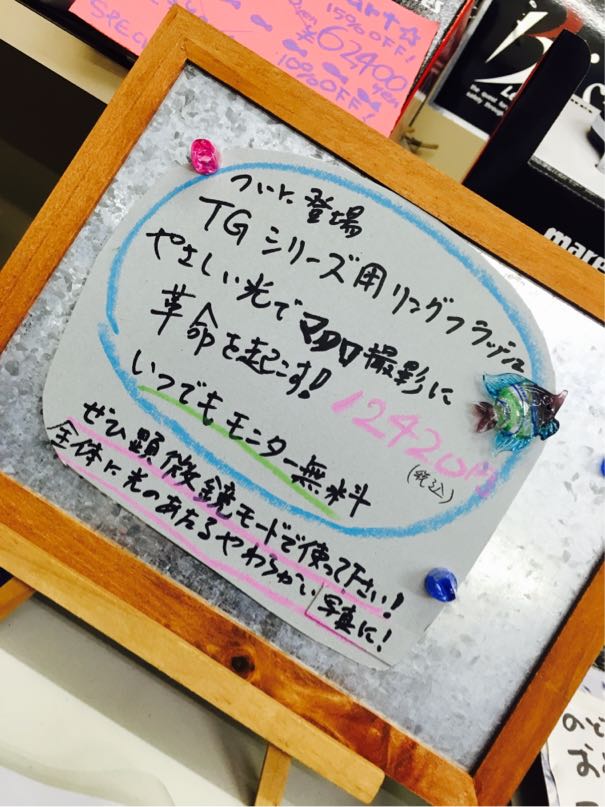 15%OFF!
¥62400
10%OFF!
ついに登場
TGシリーズ用リングフラッシュ
やさしい光でマクロ撮影に
革命を起こす!
12420円
(税込)
いつでもモニター無料
ぜひ顕微鏡モードで使って下さい!
全体に光のあたるやわらかい写真に!
mare